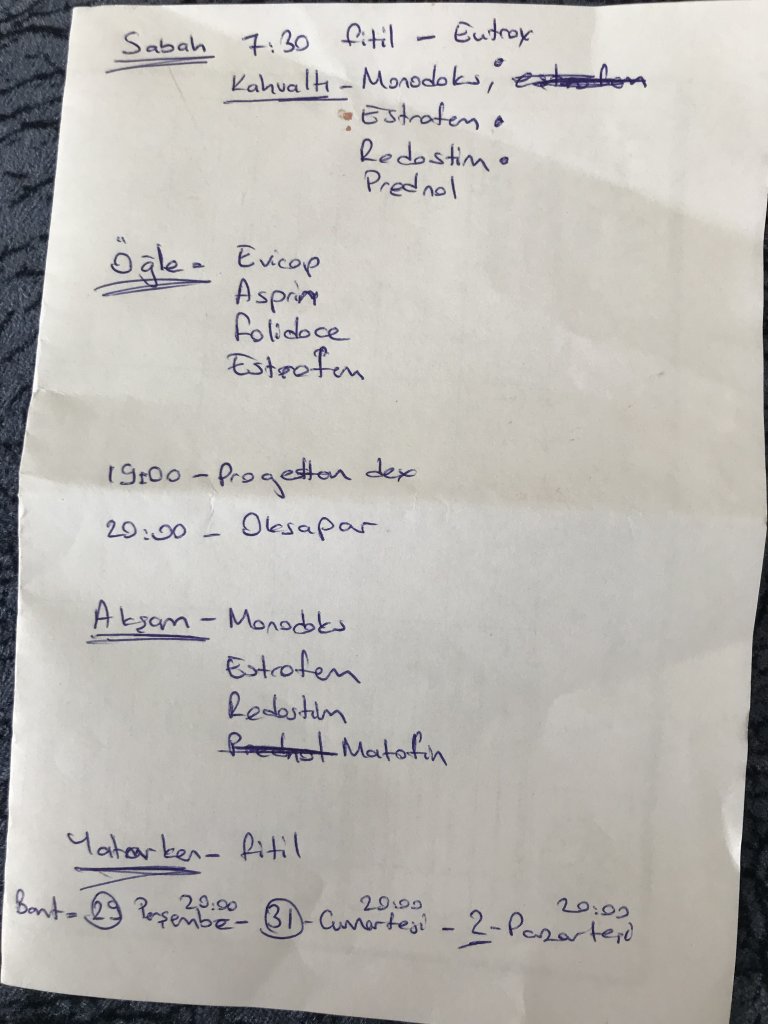 Sabah 7:30 fitil - Eutrox
Kahvaltı - Monodoks, estrofem
Estrofem
Redostim
Prednol
Öğle - Evicap
Asprin
folidoce
Estrofem
19:00 - Progestan dex
20:00 - Oksapar
Akşam - Monodoks
Estrofem
Redostim
Prednol Matofin
Yatarken - fitil
Bant = 29 Perşembe 20:00 - 31 - Cumartesi 20:00 - 2 - Pazartesi 20:00